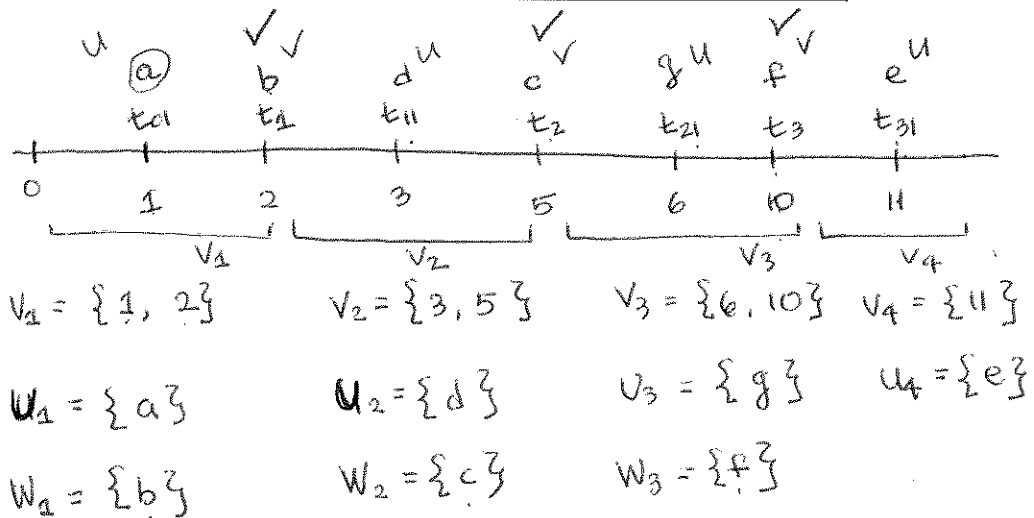 u ✓ v ✓ v u ✓ v
u a b d u c g u f e u
t01 t1 t11 t2 t21 t3 t31
0 1 2 3 5 6 10 11
V1 V2 V3 V4
V1 = {1, 2} V2 = {3, 5} V3 = {6, 10} V4 = {11}
U1 = {a} U2 = {d} U3 = {g} U4 = {e}
W1 = {b} W2 = {c} W3 = {f}